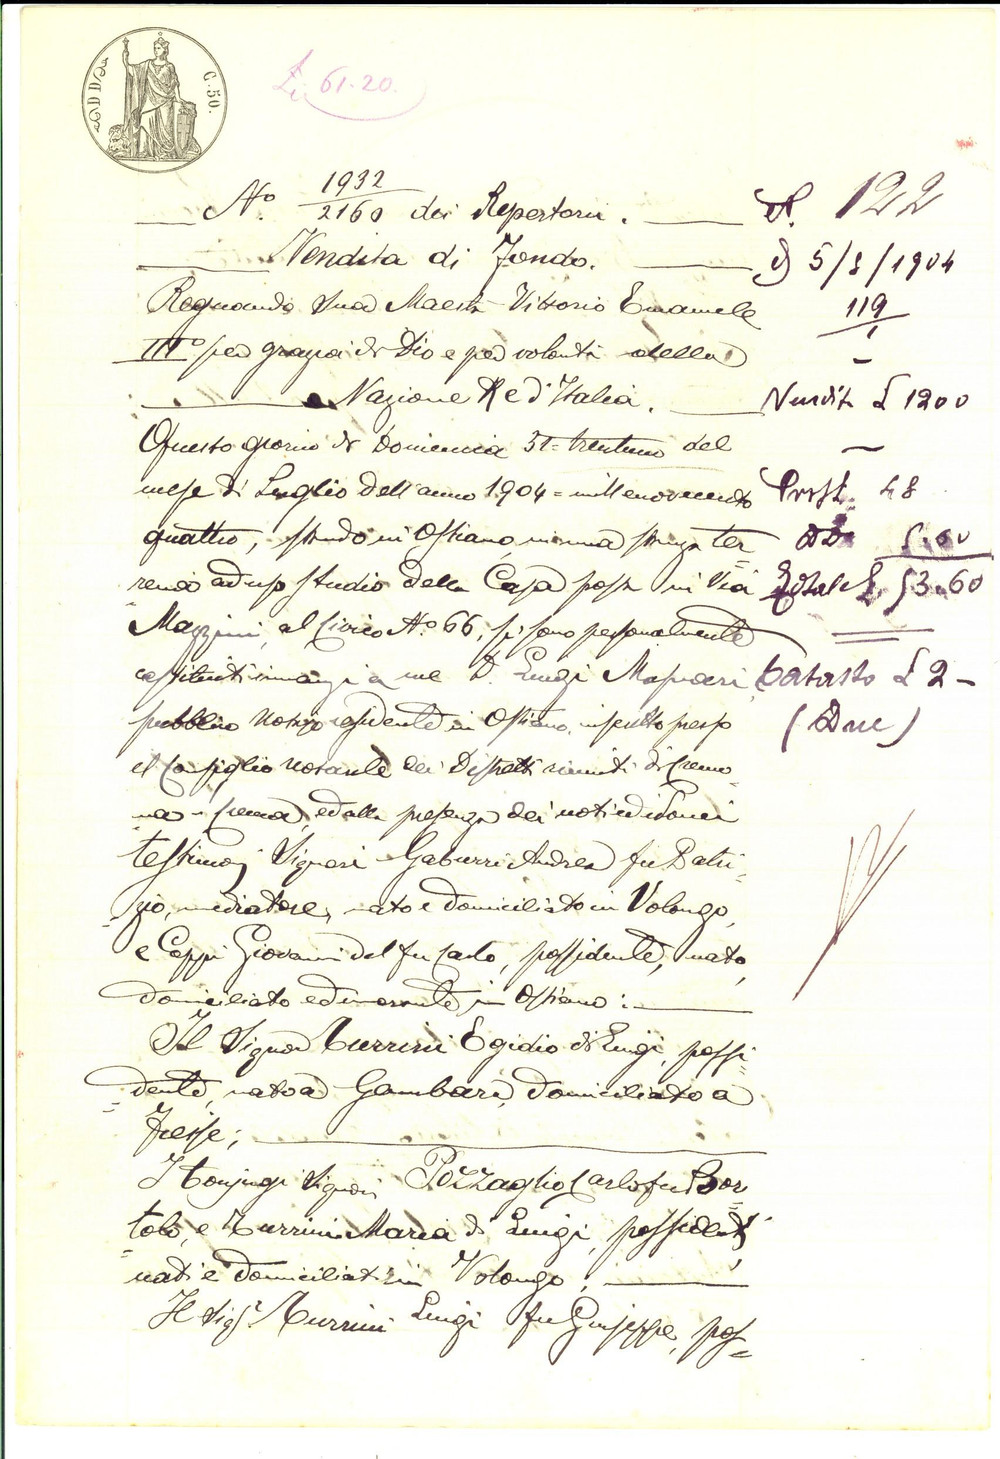 C. 50.
L. 61.20.
N.° 1932/2160 dei Repertori.
Vendita di Fondo.
Regnando Sua Maestà Vittorio Emanuele
III° per grazia di Dio e per volontà della
Nazione Re d'Italia.
Questo giorno di Domenica 31= trentuno del
mese di Luglio dell'anno 1904= millenovecento
quattro, stando in Ostiano, in una stanza ter
rena ad uso studio della Casa posta in Via
Mazzini, al Civico N.° 66, si sono personalmente
costituiti innanzi a me D. Luigi
pubblico Notajo residente in Ostiano, inscritto presso
il Consiglio notarile dei Distretti riuniti di Cremo=
na - Crema, ed alla presenza dei noti ed idonei
testimonj Signori Gaburri Andrea fu Batti=
=, mediatore, nato e domiciliato in Volongo,
e Coppi Giovanni del fu Carlo, possidente, nato,
domiciliato e dimorante in Ostiano:
Il Signor Turrini Egidio di Luigi, possi=
=dente, nato a Gambara, domiciliato a
Fiesse;
I Conjugi Signori Pozzaglio Carlo fu Bor=
=tolo, e Turrini Maria di Luigi, possidenti,
nati e domiciliati in Volongo,
Il Sig.r Turrini Luigi fu Giuseppe, pos=
N. 122
5/8/1904
119
Vendita £ 1200
48
5.60
Totale £ 53.60
Catasto £ 2 -
(Due)